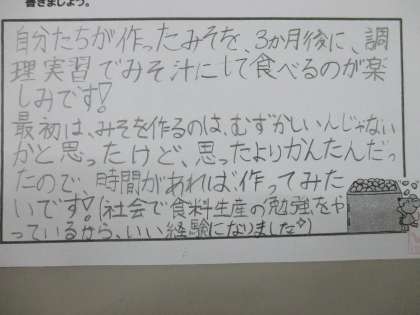 書きましょう。
自分たちが作ったみそを、3か月後に、調
理実習でみそ汁にして食べるのが楽
しみです!
最初は、みそを作るのは、むずかしいんじゃない
かと思ったけど、思ったよりかんたんだっ
たので、時間があれば、作ってみた
いです!(社会で食料生産の勉強をや
っているから、いい経験になりました)